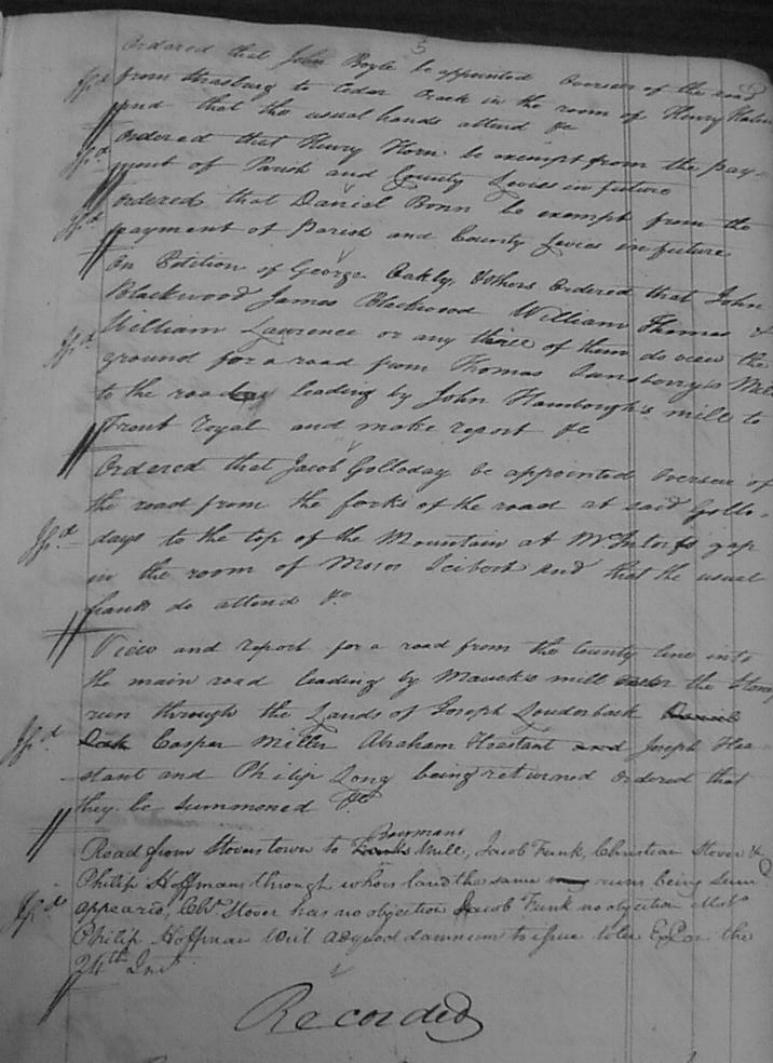 5
Ordered that John Boyle be appointed Overseer of the road
from Strasburg to Cedar Creek in the room of Henry
and that the usual hands attend &c
Ordered that Henry Horn be exempt from the pay-
ment of Parish and County Levies in future
Ordered that Daniel Bonn be exempt from the
payment of Parish and County Levies in future
On Petition of George Oakly, & others Ordered that John
Blackwood James Blackwood William Thomas &
William Lawrence or any three of them do view the
ground for a road from Thomas Mill
to the road leading by John mill to
Front Royal and make report &c
Ordered that Jacob Golloday be appointed Overseer of
the road from the forks of the road at said Gollo-
days to the top of the Mountain at gap
in the room of and that the usual
hands do attend &c
View and report for a road from the County line into
the main road leading by mill the Stony
run through the Lands of Joseph Louderback Daniel
Casper Miller Abraham Heastant and Joseph Hea
stant and Philip Long being returned Ordered that
they be summoned &c
Boermans
Road from Stovers town to Mill, Jacob Funk, Christian Stover &
Philip Hoffman through whose land the same runs being Sum
appeared, Chr. Stover has no objection Jacob Funk no objection
Philip Hoffman Writ adquod damnum to issue to be Exd. on the
24th Inst
Recorded